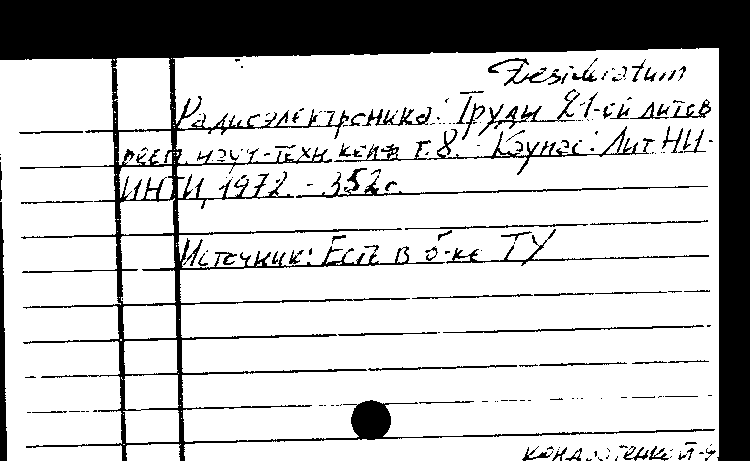 Desideratum
Радиоэлектроника: Труды 21-ой литов
респ. науч-техн. конф т. 8. - Каунас: Лит НИ-
ИНТИ, 1972. - 352 с.
Источник: Есть в б-ке ТУ